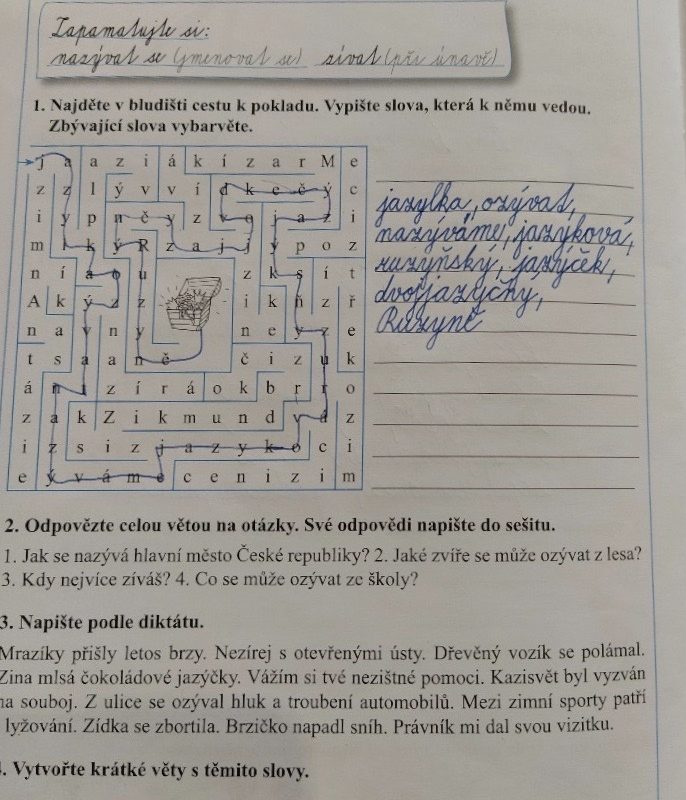 Zapamatujte si:
nazývat se (jmenovat se) zívat (při únavě)
1. Najděte v bludišti cestu k pokladu. Vypište slova, která k němu vedou.
Zbývající slova vybarvěte.
j a a z i á k í z a r M e
z z l ý v v í d k e č ý c
i y p n č y z v o j a z i
m l k ý R z a j j ý p o z
n í á o u z k s í t
A k ý z z i k ň z ř
n a v n y n e y z e
t s a a n ě č i z u k
á n t z í r á o k b r r o
z a k Z i k m u n d v á z
i z s i z j a z y k o c i
e ý v á m e c e n i z i m
jazylka, ozývat,
nazýváme, jazyková,
ruzyňský, jazýček,
dvojjazyčný,
Ruzyně
2. Odpovězte celou větou na otázky. Své odpovědi napište do sešitu.
1. Jak se nazývá hlavní město České republiky? 2. Jaké zvíře se může ozývat z lesa?
3. Kdy nejvíce zíváš? 4. Co se může ozývat ze školy?
3. Napište podle diktátu.
Mrazíky přišly letos brzy. Nezírej s otevřenými ústy. Dřevěný vozík se polámal.
Zina mlsá čokoládové jazýčky. Vážím si tvé nezištné pomoci. Kazisvět byl vyzván
na souboj. Z ulice se ozýval hluk a troubení automobilů. Mezi zimní sporty patří
lyžování. Zídka se zbortila. Brzičko napadl sníh. Právník mi dal svou vizitku.
4. Vytvořte krátké věty s těmito slovy.